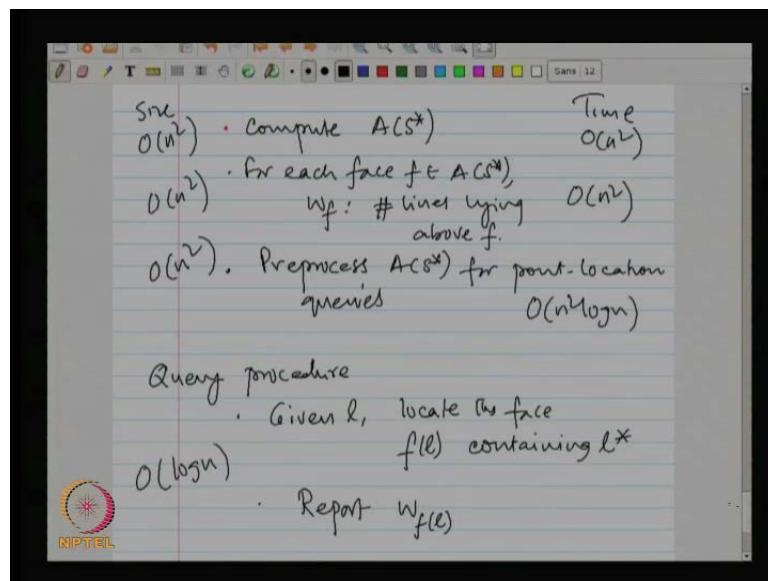 Sans 12
Size Time
O(n²) · Compute A(S*) O(n²)
· For each face f ∈ A(S*),
O(n²) W_f : # lines lying O(n²)
above f.
O(n²) · Preprocess A(S*) for point-location
queries O(n² log n)
Query procedure
· Given l, locate the face
f(l) containing l*
O(log n)
· Report W_f(l)
NPTEL